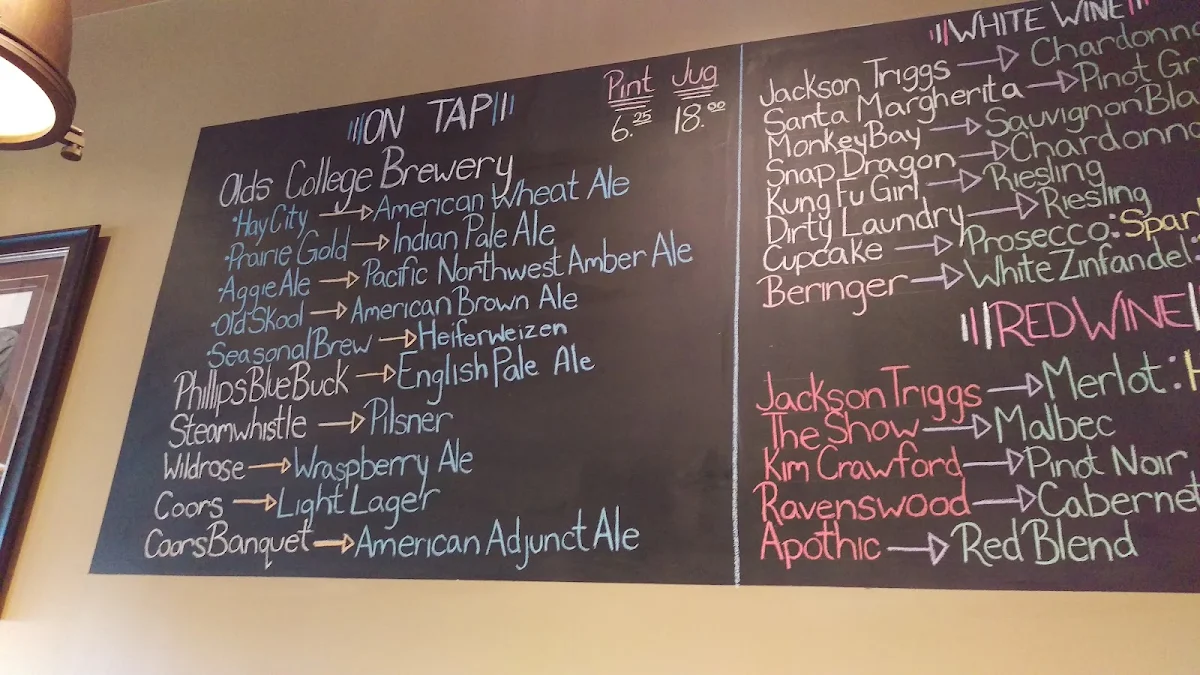 ON TAP
Pint Jug
6.25 18.00
Olds College Brewery
Hay City → American Wheat Ale
Prairie Gold → Indian Pale Ale
Aggie Ale → Pacific Northwest Amber Ale
Old Skool → American Brown Ale
Seasonal Brew → Heiferweizen
Phillips Blue Buck → English Pale Ale
Steamwhistle → Pilsner
Wildrose → Wraspberry Ale
Coors → Light Lager
Coors Banquet → American Adjunct Ale
WHITE WINE
Jackson Triggs → Chardonna
Santa Margherita → Pinot Gr
Monkey Bay → Sauvignon Bla
Snap Dragon → Chardonna
Kung Fu Girl → Riesling
Dirty Laundry → Riesling
Cupcake → Prosecco: Spar
Beringer → White Zinfandel:
RED WINE
Jackson Triggs → Merlot: H
The Show → Malbec
Kim Crawford → Pinot Noir
Ravenswood → Cabernet
Apothic → Red Blend